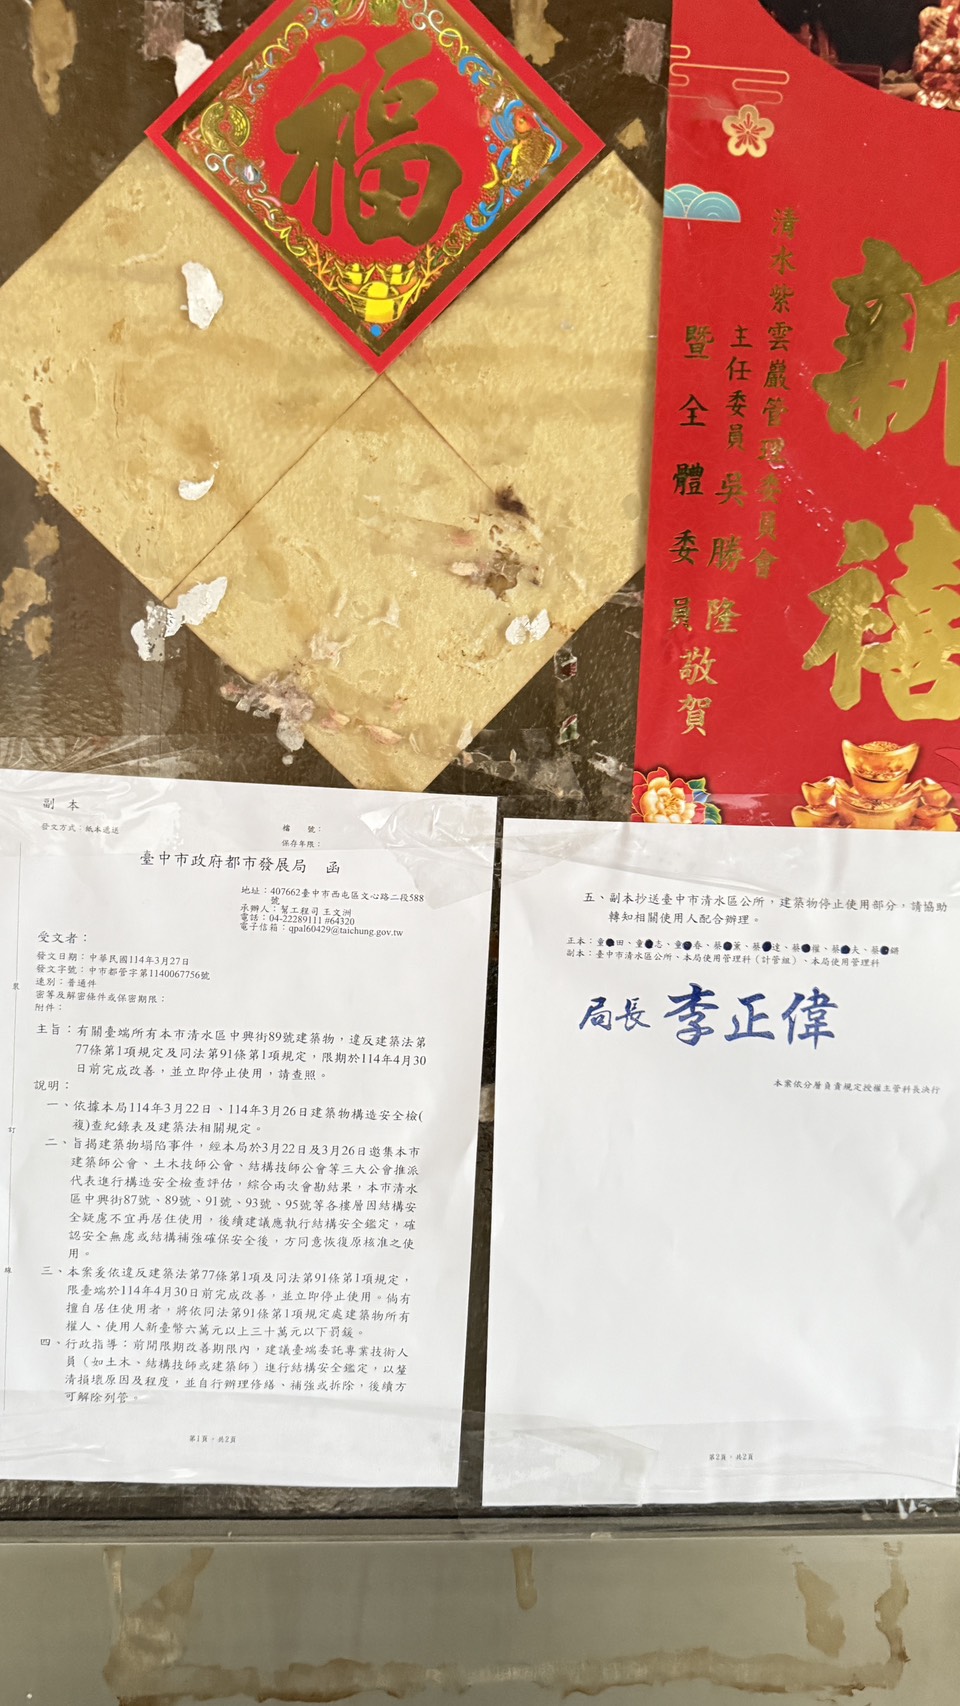 福
新禧
清水紫雲巖管理委員會
主任委員吳勝隆
暨全體委員敬賀
副 本
發文方式：紙本遞送
檔 號：
保存年限：
臺中市政府都市發展局 函
地址：407662臺中市西屯區文心路二段588
號
承辦人：幫工程司 王文洲
電話：04-22289111 #64320
電子信箱：qpal60429@taichung.gov.tw
受文者：
發文日期：中華民國114年3月27日
發文字號：中市都管字第1140067756號
速別：普通件
密等及解密條件或保密期限：
附件：
主旨：有關臺端所有本市清水區中興街89號建築物，違反建築法第
77條第1項規定及同法第91條第1項規定，限期於114年4月30
日前完成改善，並立即停止使用，請查照。
說明：
一、依據本局114年3月22日、114年3月26日建築物構造安全檢(
複)查紀錄表及建築法相關規定。
二、旨揭建築物塌陷事件，經本局於3月22日及3月26日邀集本市
建築師公會、土木技師公會、結構技師公會等三大公會推派
代表進行構造安全檢查評估，綜合兩次會勘結果，本市清水
區中興街87號、89號、91號、93號、95號等各樓層因結構安
全疑慮不宜再居住使用，後續建議應執行結構安全鑑定，確
認安全無虞或結構補強確保安全後，方同意恢復原核准之使
用。
三、本案爰依違反建築法第77條第1項及同法第91條第1項規定，
限臺端於114年4月30日前完成改善，並立即停止使用。倘有
擅自居住使用者，將依同法第91條第1項規定處建築物所有
權人、使用人新臺幣六萬元以上三十萬元以下罰鍰。
四、行政指導：前開限期改善期限內，建議臺端委託專業技術人
員（如土木、結構技師或建築師）進行結構安全鑑定，以釐
清損壞原因及程度，並自行辦理修繕、補強或拆除，後續方
可解除列管。
裝
訂
線
第1頁，共2頁
五、副本抄送臺中市清水區公所，建築物停止使用部分，請協助
轉知相關使用人配合辦理。
正本：童田、童志、童春、蔡薰、蔡達、蔡權、蔡夫、蔡
副本：臺中市清水區公所、本局使用管理科（計管組）、本局使用管理科
局長 李正偉
本案依分層負責規定授權主管科長決行
第2頁，共2頁